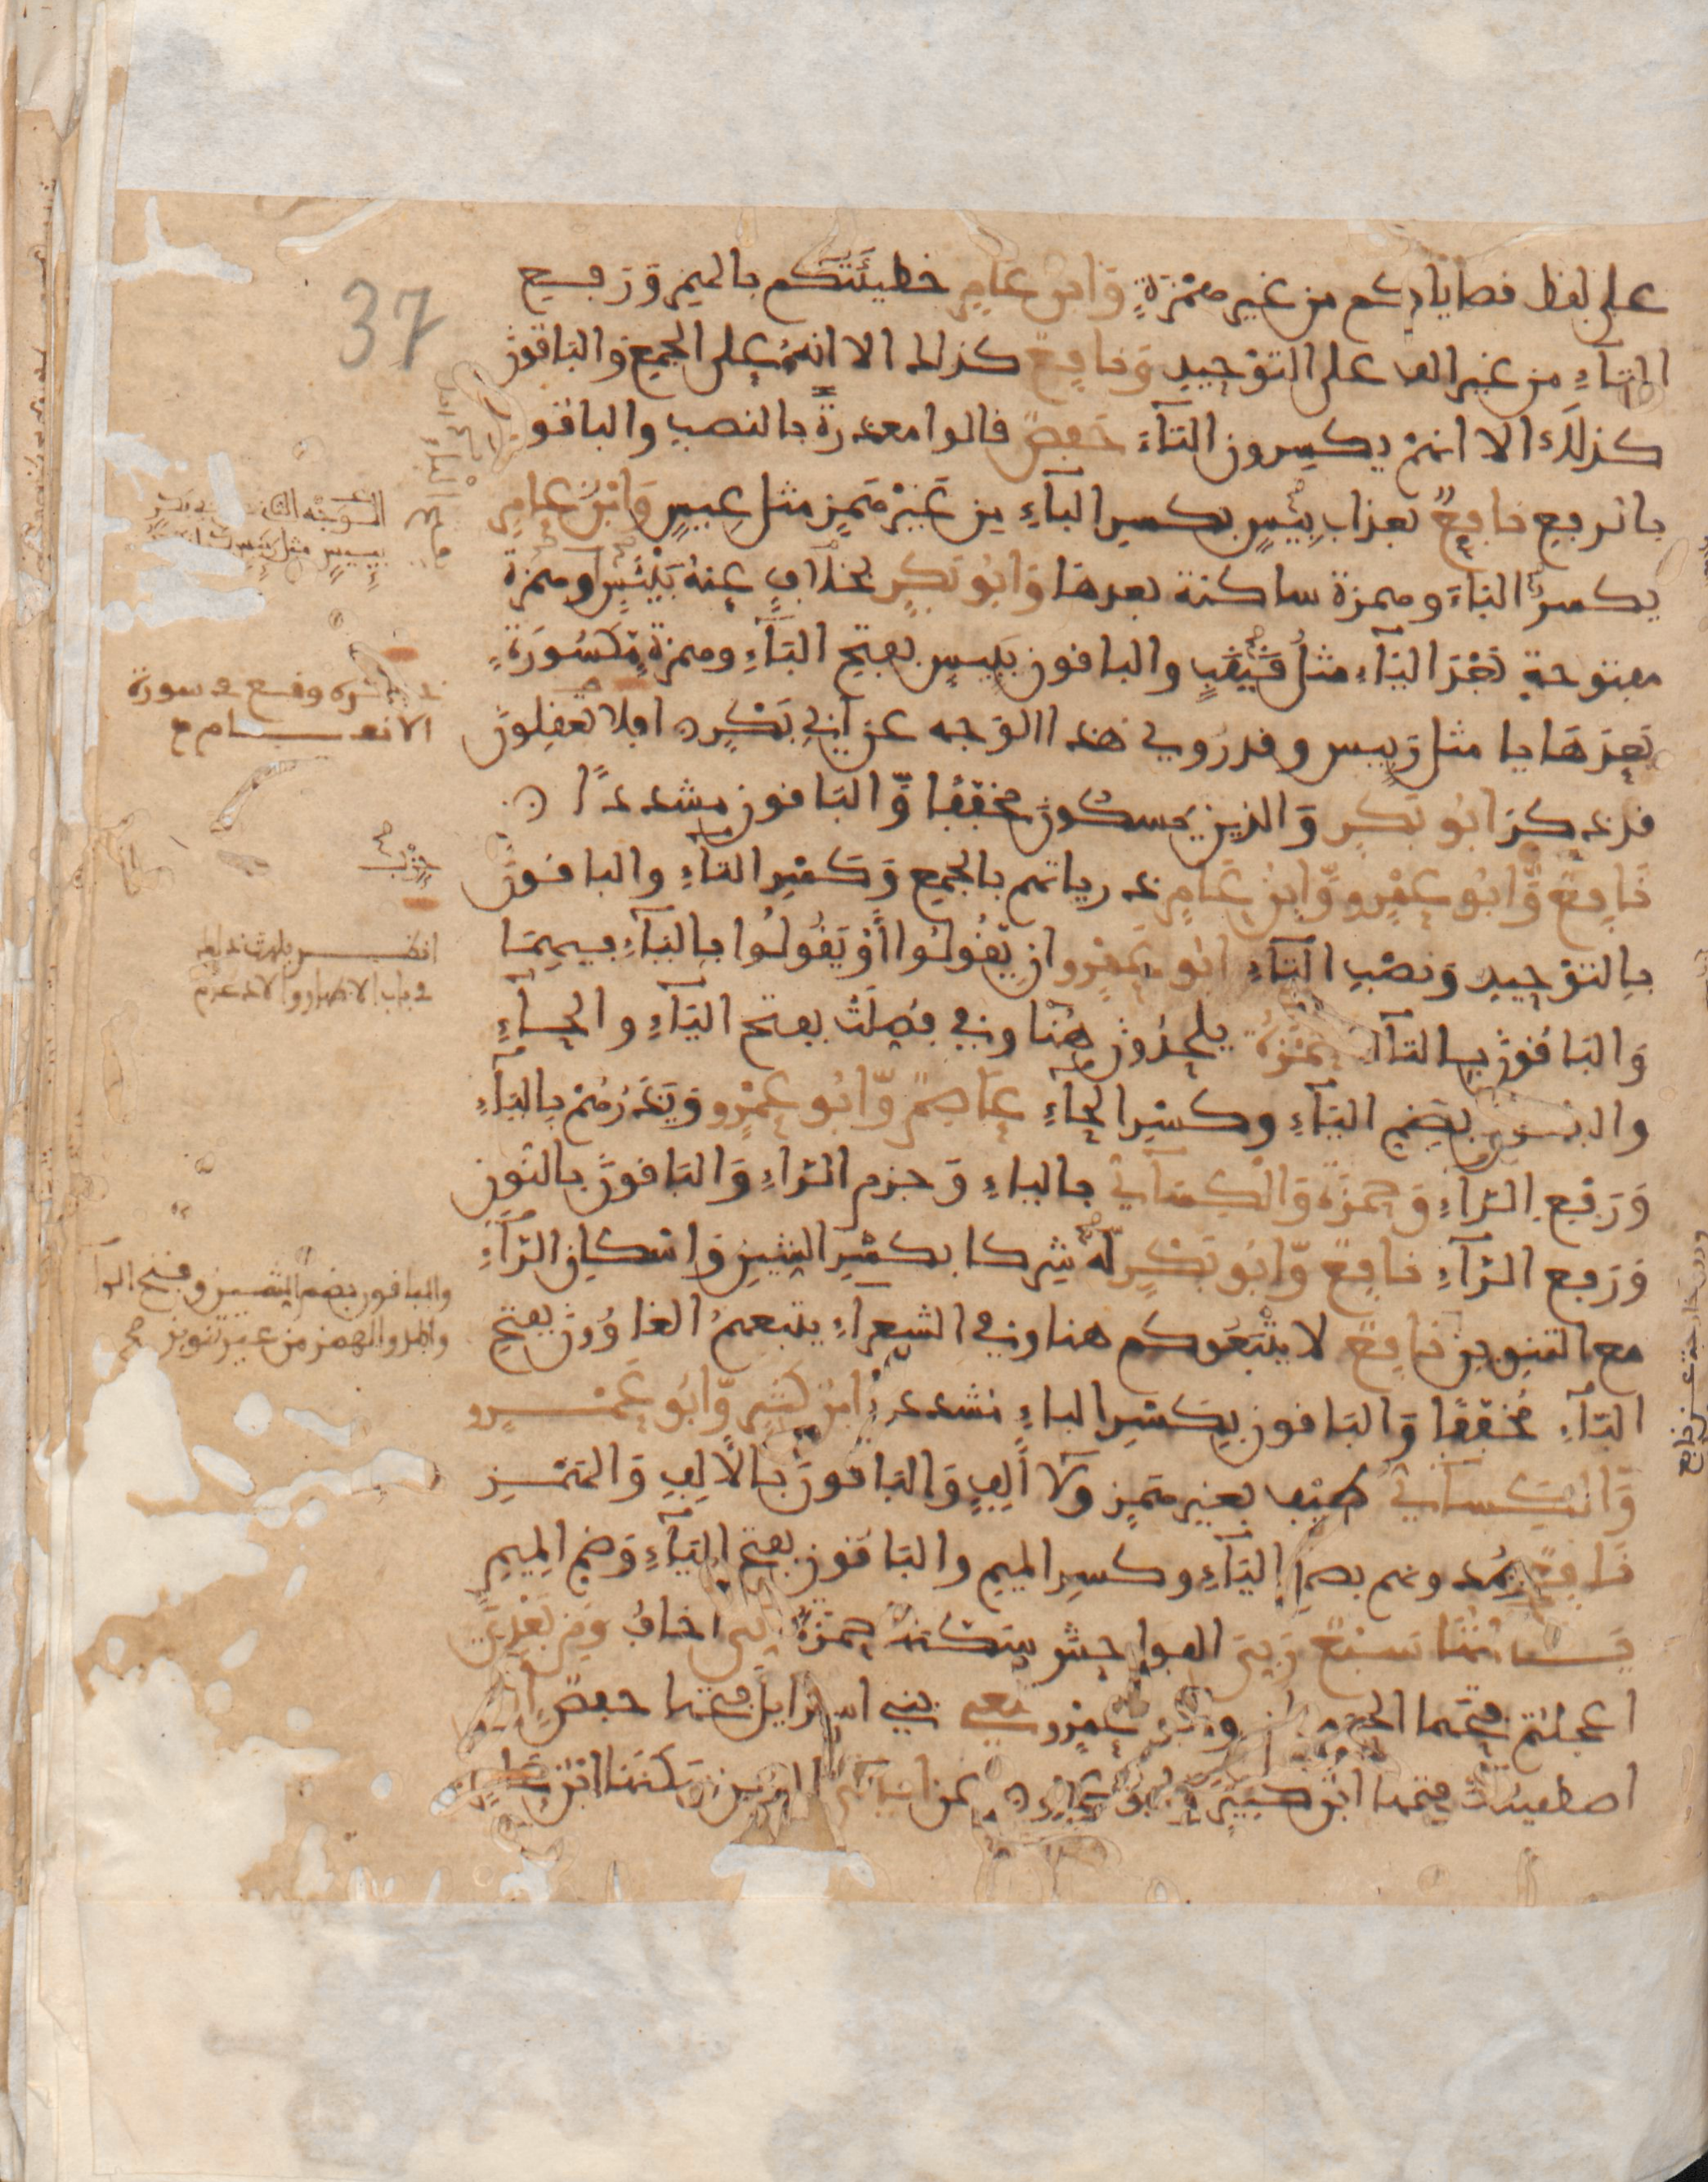 37
على لفظ فضاياكم من غير همزة وابن عامر خطيئتكم بالهمز ورفع
التاء من غير الف على التوحيد ونافع كذلك الا انه على الجمع والباقون
كذلك الا انهم يكسرون التاء حفص قالوا معذرة بالنصب والباقون
بالرفع نافع بعذاب بيس بكسر الباء من غير همز مثل عيس وابن عامر
بكسر الباء وهمزة ساكنة بعدها وابو بكر بخلاف عنه بيئس وهمزة
مفتوحة بعد الياء مثل فيعل والباقون بئيس بفتح الباء وهمزة مكسورة
بعدها يا مثل رييس وقد روي هذا الوجه عن ابي بكر افلا تعقلون
قد ذكر ابو بكر والذين يمسكون مخففا والباقون مشددا
نافع وابو عمرو وابن عامر ذرياتهم بالجمع وكسر التاء والباقون
بالتوحيد ونصب التاء ابو عمرو ان يقولوا او يقولوا بالياء فيهما
والباقون بالتاء حمزة يلحدون هنا وفي فصلت بفتح الياء والحاء
والباقون بضم الياء وكسر الحاء عاصم وابو عمرو ويذرهم بالياء
ورفع الراء وحمزة والكسائي بالياء وجزم الراء والباقون بالنون
ورفع الراء نافع وابو بكر له شركا بكسر الشين واسكان الراء
مع التنوين نافع لا يتبعوكم هنا وفي الشعراء يتبعهم الغاوون بفتح
الباء مخففا والباقون بكسر الباء مشددا ابن كثير وابو عمرو
والكسائي طيف بغير همز ولا الف والباقون بالالف والهمز
نافع يمدونهم بضم الياء وكسر الميم والباقون بفتح الياء وضم الميم
ياءاتها سبع ربي الفواحش سكنها حمزة اني اخاف ومن بعدي
اعجلتم فتحهما الحرميان وابو عمرو معي بني اسرايل فتحها حفص اني
اصطفيتك فتحها ابن كثير وابو عمرو عن اياتي الذين سكنها ابن عامر
الوجه الثاني
بييس مثل رييس
ذكره وقع في سورة
الانعام
انظر يلهث ذلك
في باب الاظهار والادغام
والباقون بضم الشين وفتح الرا
والمد والهمز من غير تنوين صح